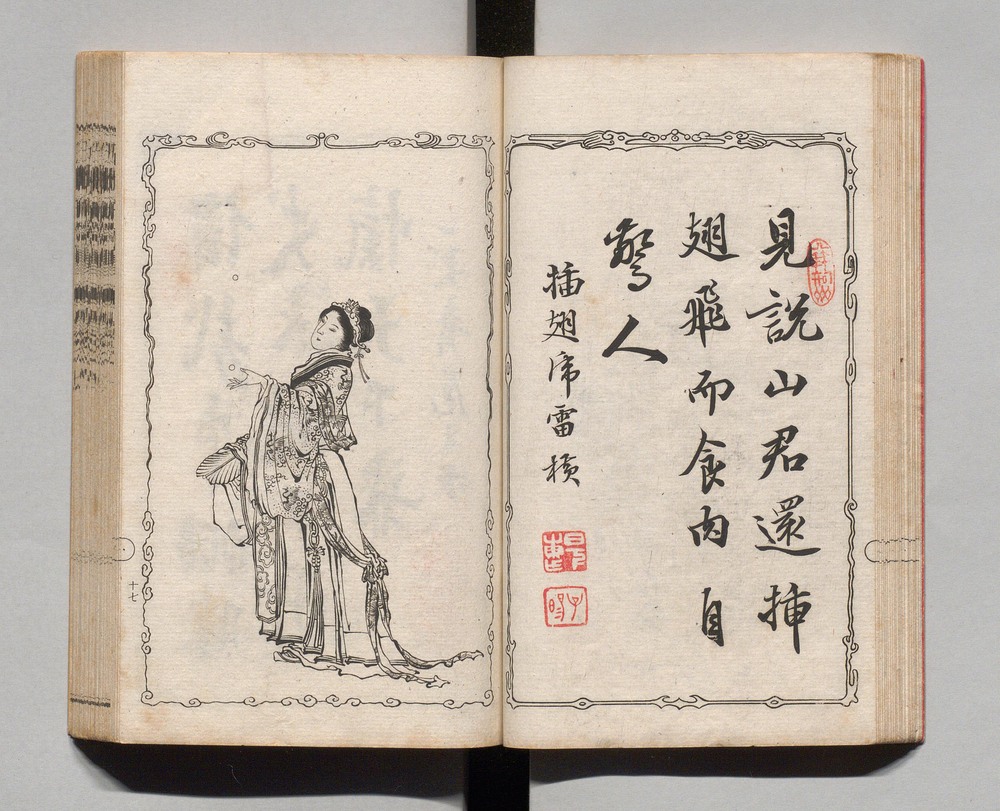 見説山君還挿
翅飛而食肉自
驚人
插翅席雷横
十七